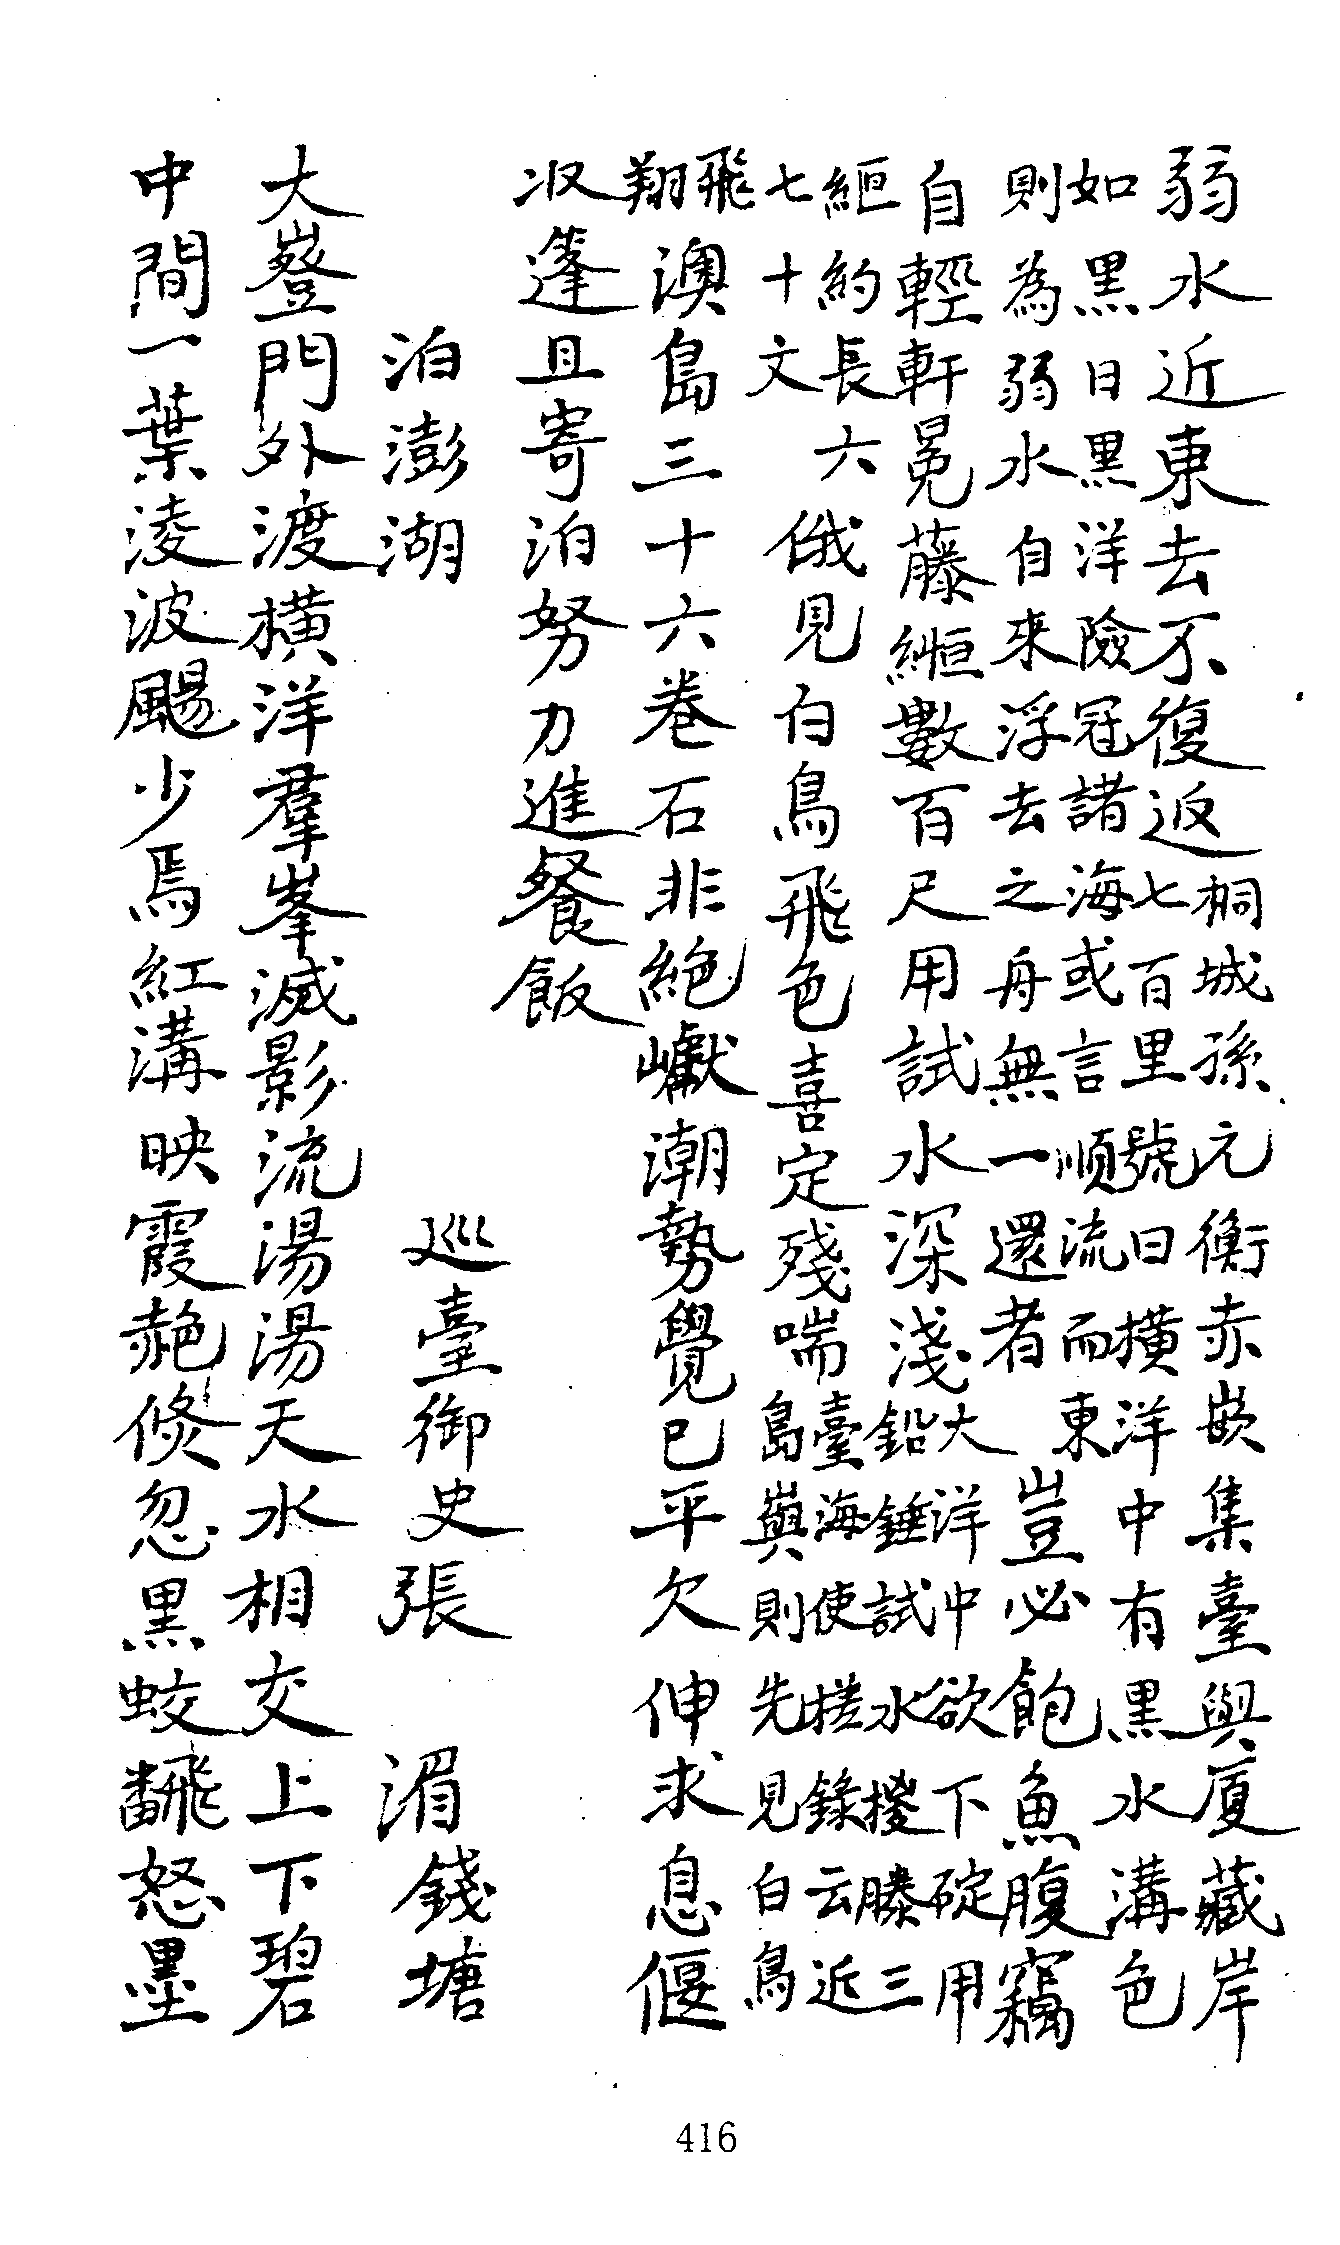 弱水近東去不復返桐城孫元衡赤嵌集臺與廈藏岸
七百里號曰橫洋中有黑水溝色
如黑日黑洋險冠諸海或言順流而東
則為弱水自來浮去之舟無一還者豈必飽魚腹竊
自輕軒冕藤縆數百尺用試水深淺大洋中欲下碇用
鉛錘試水縢三
絙約長六
七十文俄見白鳥飛色喜定殘喘臺海使槎錄云近
島嶼則先見白鳥
飛
翔澳島三十六卷石非絕巘潮勢覺已平欠伸求息偃
収篷且寄泊努力進餐飯
泊澎湖 巡臺御史張 湄錢塘
大嶝門外渡橫洋羣峯滅影流湯湯天水相交上下碧
中間一葉淩波颺少焉紅溝映霞赩倐忽黑蛟飜怒墨
416